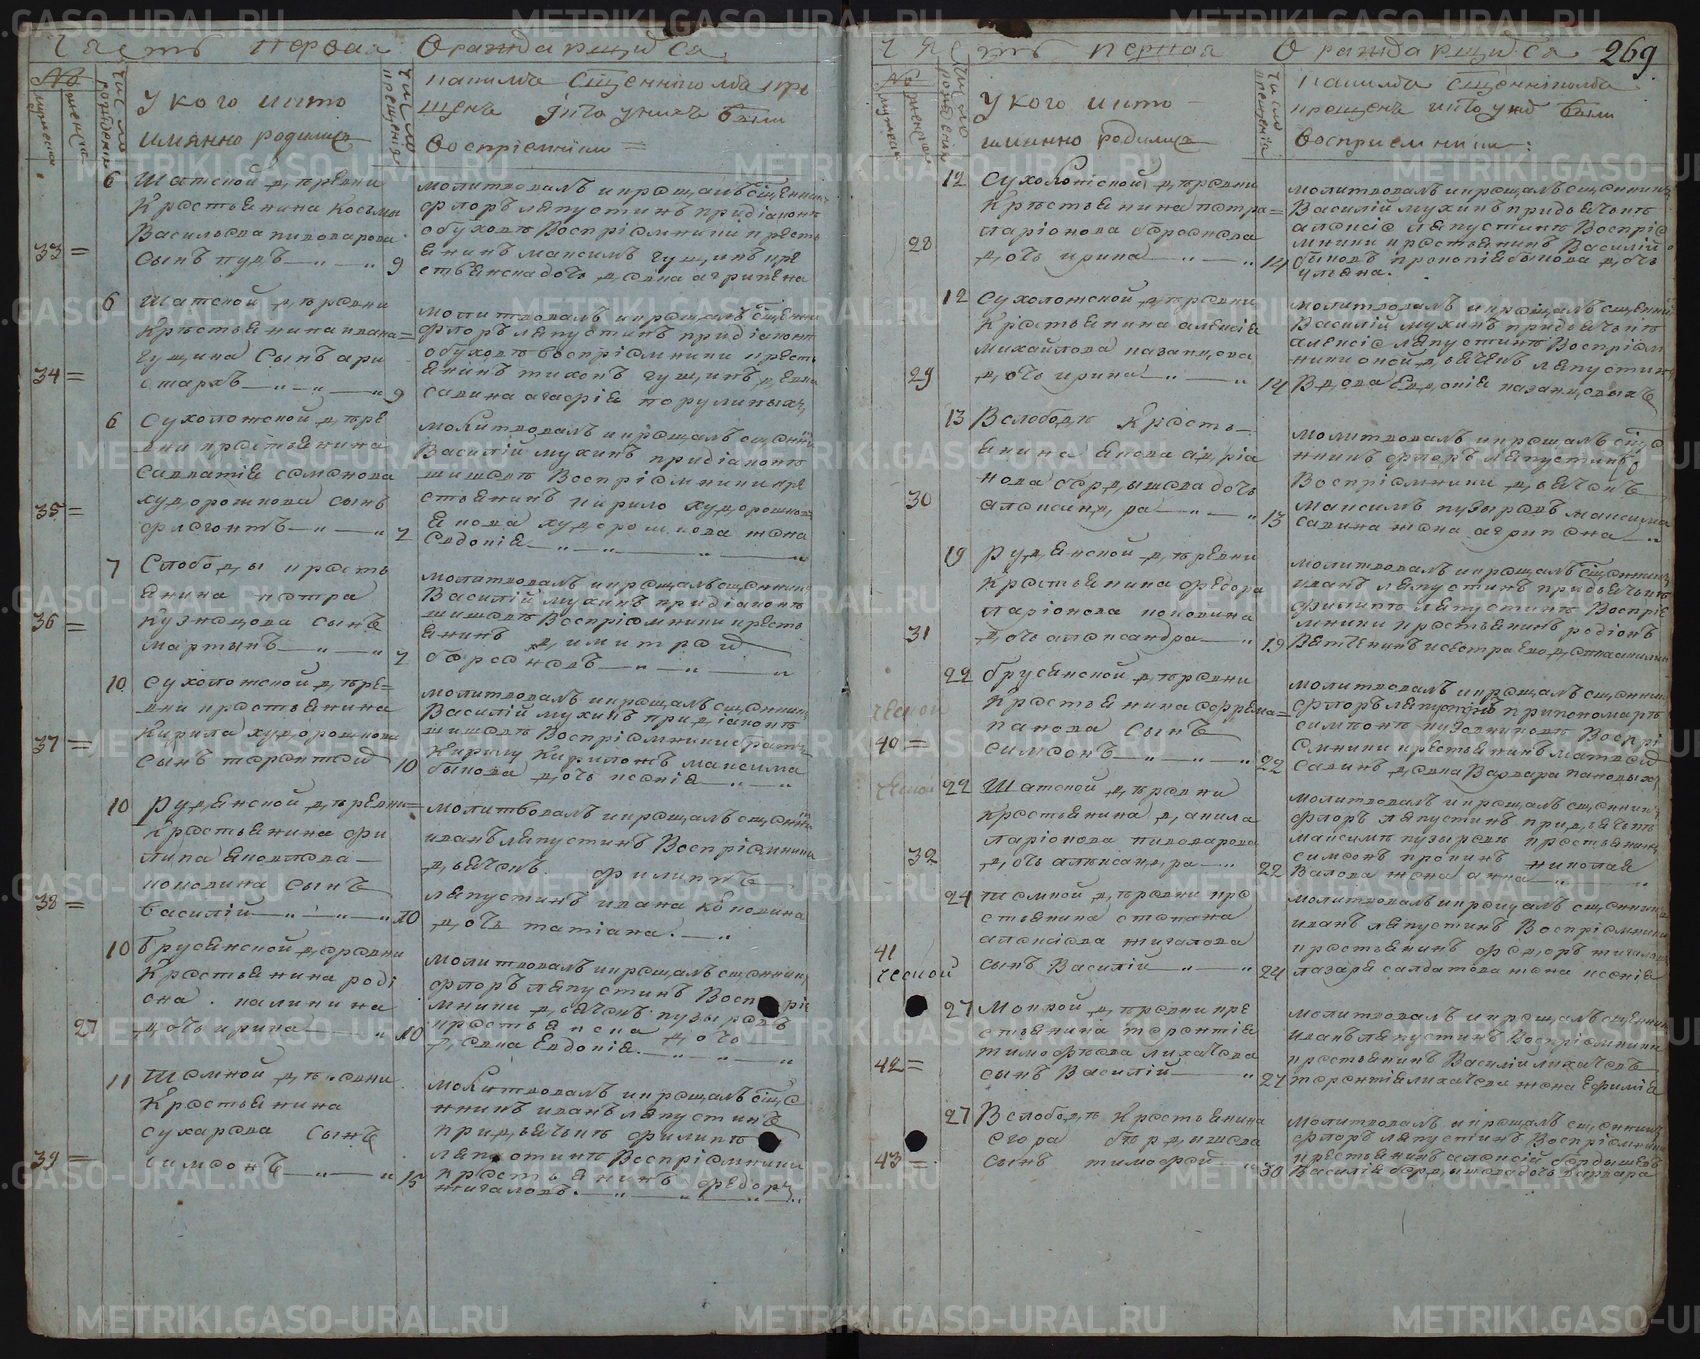 Часть первая О раждающихся
№
мужеска
женска
число рожденія
У кого и кто
имянно родился
число крещенія
какимъ священникомъ кре
щенъ и кто у нихъ были
воспріемники
33
6
Шатской деревни
крестьянина косьмы
Васильева пивоварова
сынъ
9
молитвовалъ и крещалъ священникъ
флоръ ляпустинъ при діаконѣ
обуховѣ воспріемники кресть
янинъ максимъ гущинъ кре
стьянска дочь девка агрипена
34
6
Шатской деревни
крестьянина ивана
гущина сынъ ари
стархъ
9
молитвовалъ и крещалъ священникъ
флоръ ляпустинъ при діаконѣ
обуховѣ воспріемники кресть
янинъ тихонъ гущинъ
35
6
Сухоложской дере
вни крестьянина
савватія семенова
худорошкова сынъ
флегонтъ
7
молитвовалъ и крещалъ священникъ
Василій мухинъ при діаконѣ
шишевѣ воспріемники кре
стьянинъ кирило худорошковъ
якова худорошкова жена
Евдокія
36
7
Слободы кресть
янина петра
кузнецова сынъ
мартынъ
7
молитвовалъ и крещалъ священникъ
Василій мухинъ при діаконѣ
шишевѣ воспріемники кресть
янинъ димитрей
37
10
Сухоложской дере
вни крестьянина
Кирила худорошкова
сынъ терентей
10
молитвовалъ и крещалъ священникъ
Василій мухинъ при діаконѣ
шишевѣ воспріемники братъ
Кирилу Кириломъ максима
быкова дочь ксенія
38
10
Рудянской деревни
крестьянина фи
липа яковлева
коковина сынъ
василій
10
молитвовалъ и крещалъ священникъ
иванъ ляпустинъ воспріемники
дьячекъ филиппъ
ляпустинъ ивана коковина
дочь татіана
27
10
брусянской деревни
крестьянина роді
она калинина
дочь ирина
10
молитвовалъ и крещалъ священникъ
флоръ ляпустинъ воспріе
мники дьячекъ пузыревъ
крестьянска дочь
девка Евдокія
39
11
темной деревни
крестьянина
сухарева сынъ
симеонъ
15
молитвовалъ и крещалъ свяще
нникъ иванъ ляпустинъ
при дьячькѣ филипѣ
ляпустинѣ воспріемники
крестьянинъ федоръ
жигаловъ
Часть первая О раждающихся 269
№
мужеска
женска
число рожденія
У кого и кто
имянно родился
число крещенія
какимъ священникомъ
крещенъ и кто у нихъ были
воспріемники
28
12
Сухоложской деревни
крестьянина петра
ларіонова
дочь ирина
14
молитвовалъ и крещалъ священникъ
Василій мухинъ при дьячькѣ
алексіѣ ляпустинѣ воспріе
мники крестьянинъ Василій
быковъ прокопія быкова дочь
ульяна
29
12
Сухоложской деревни
крестьянина алексія
михайлова казанцова
дочь ирина
14
молитвовалъ и крещалъ священникъ
Василій мухинъ при дьячькѣ
алексіѣ ляпустинѣ воспріем
ники оной дьячекъ ляпустинъ
вдова Евдокія казанцовыхъ
30
13
В слободѣ кресть
янина якова адріа
нова бердышева дочь
александра
13
молитвовалъ и крещалъ свяще
нникъ флоръ ляпустинъ
воспріемники дьячекъ
максимъ пузыревъ
жена агрипена
31
19
Рудянской деревни
крестьянина федора
ларіонова коковина
дочь александра
19
молитвовалъ и крещалъ священникъ
иванъ ляпустинъ при дьячькѣ
филипѣ ляпустинѣ воспріе
мники крестьянинъ родіонъ
40
22
брусянской деревни
крестьянина ефрема
панова сынъ
симеонъ
22
молитвовалъ и крещалъ священникъ
флоръ ляпустинъ при пономарѣ
воспрі
емники крестьянинъ матвей
савинъ девка Варвара пановыхъ
32
22
Шатской деревни
крестьянина данила
ларіонова пивоварова
дочь александра
22
молитвовалъ и крещалъ священникъ
флоръ ляпустинъ при дьячькѣ
максимѣ пузыревѣ крестьянинъ
симеонъ николая
жена анна
41
24
темной деревни кре
стьянина степана
алексіева жигалова
сынъ Василій
24
молитвовалъ и крещалъ священникъ
иванъ ляпустинъ воспріемники
крестьянинъ федоръ жигаловъ
лазаря салдатова жена ксенія
42
27
Мокрой деревни кре
стьянина терентія
тимофеева лихачева
сынъ Василій
27
молитвовалъ и крещалъ священникъ
иванъ ляпустинъ воспріемники
крестьянинъ Василій лихачевъ
терентія лихачева жена ефимія
43
27
В слободѣ крестьянина
егора бердышева
сынъ тимофей
30
молитвовалъ и крещалъ священникъ
флоръ ляпустинъ воспріемники
крестьянинъ алексей бердышевъ
Василія бердышева дочь варвара
METRIKI.GASO-URAL.RU